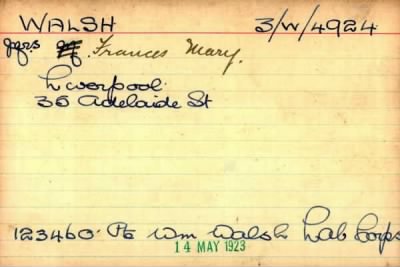 WALSH 3/W/4924
Frances Mary.
Liverpool.
36 Adelaide St
123460. Pte Wm Walsh Lab Corps
14 MAY 1923